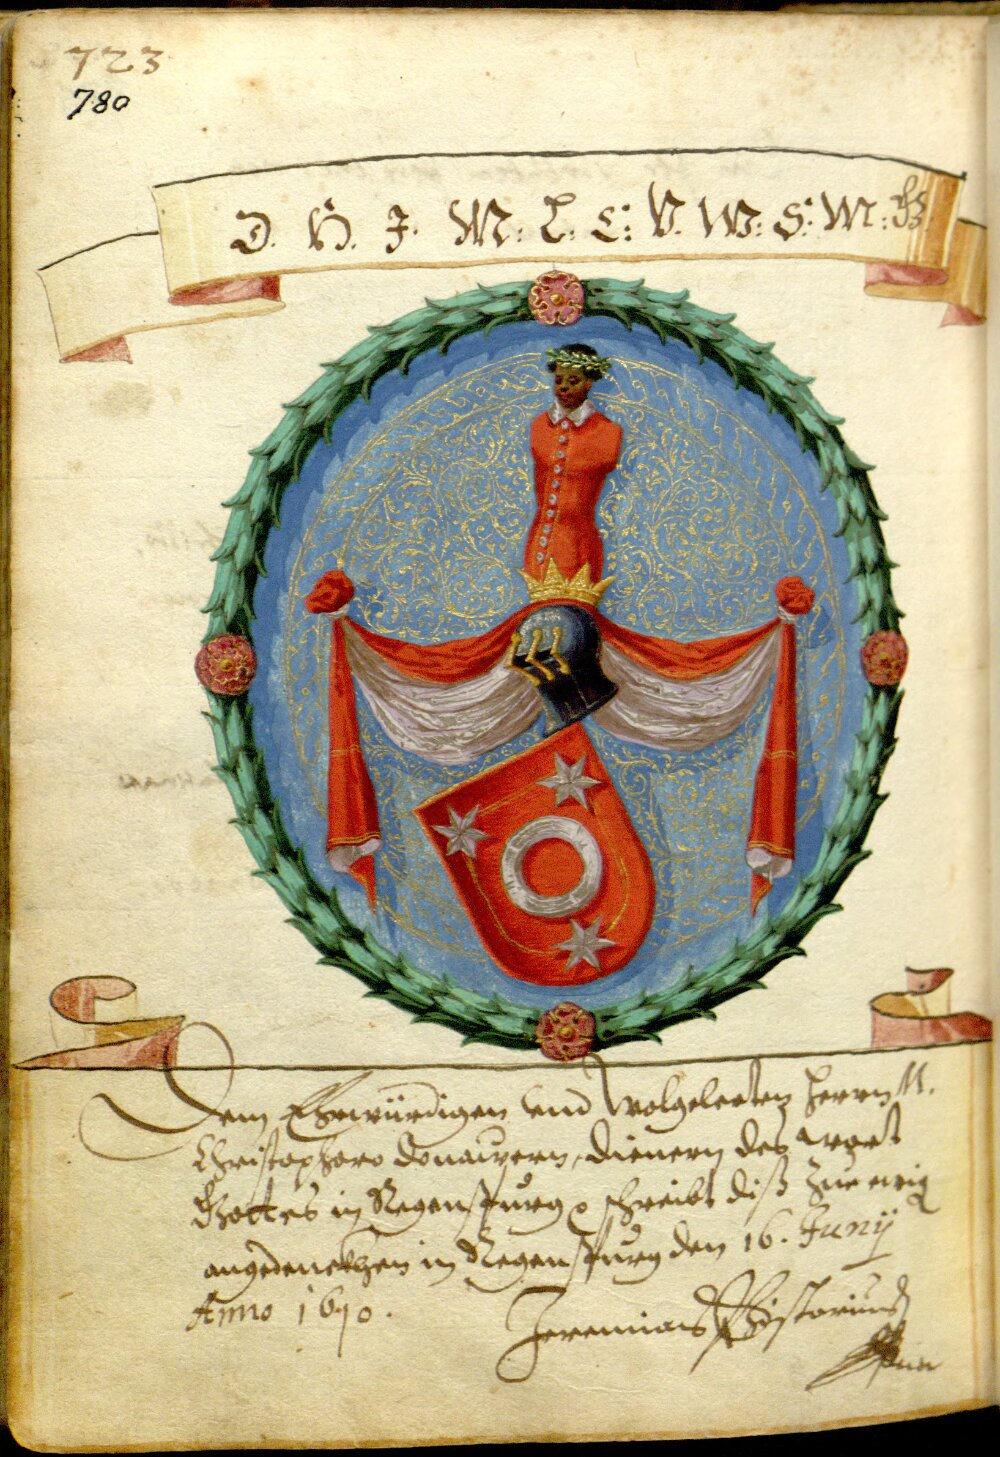 723
780
D. H. J. M. L. C: V. W: S: M: G
Dem Ehrwürdigen vnd Wolgelerten Herrn M.
Christophoro Donawern, dienern des wort
Gottes in Regenspurg schreibt diß zue ewig
angedenckhen in Regenspurg den 16. Junÿ
Anno 1610.
Jeremias Pistorius